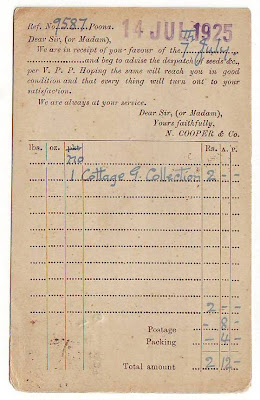 Ref. No. 9587. Poona. 14 JUL 1925
Dear Sir, (or Madam),
We are in receipt of your favour of the
and beg to advise the despatch of seeds &c.,
per V. P. P. Hoping the same will reach you in good
condition and that every thing will turn out to your
satisfaction.
We are always at your service.
Dear Sir, (or Madam),
Yours faithfully,
N. COOPER & Co.
lbs. oz. pkt Rs. A. P.
no
1 Cottage G Collection 2 - -
2 - -
Postage - 8 -
Packing - 4 -
Total amount 2 12 -